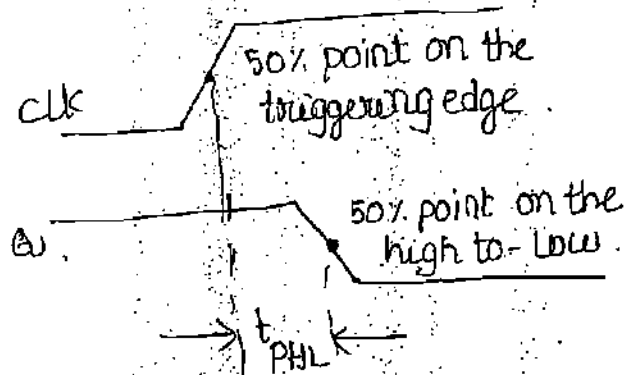 50% point on the
clk
triggering edge.
50% point on the
Q.
high to-Low.
tPHL